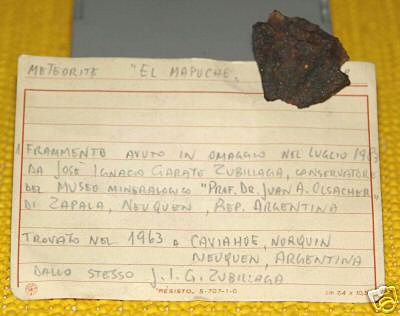 METEORITE "EL MAPUCHE"
FRAMMENTO AVUTO IN OMAGGIO NEL LUGLIO 1963
DA JOSÈ IGNACIO GARATE ZUBILLAGA, CONSERVATORE
DEL MUSEO MINERALOGICO "PROF. DR. JUAN A. OLSACHER"
DI ZAPALA, NEUQUEN, REP. ARGENTINA
TROVATO NEL 1963 A CAVIAHUE, NORQUIN
NEUQUEN, ARGENTINA
DALLO STESSO J.I.G. ZUBILLAGA
RESISTO. S-707-1-0
cm 7,4 x 10,5